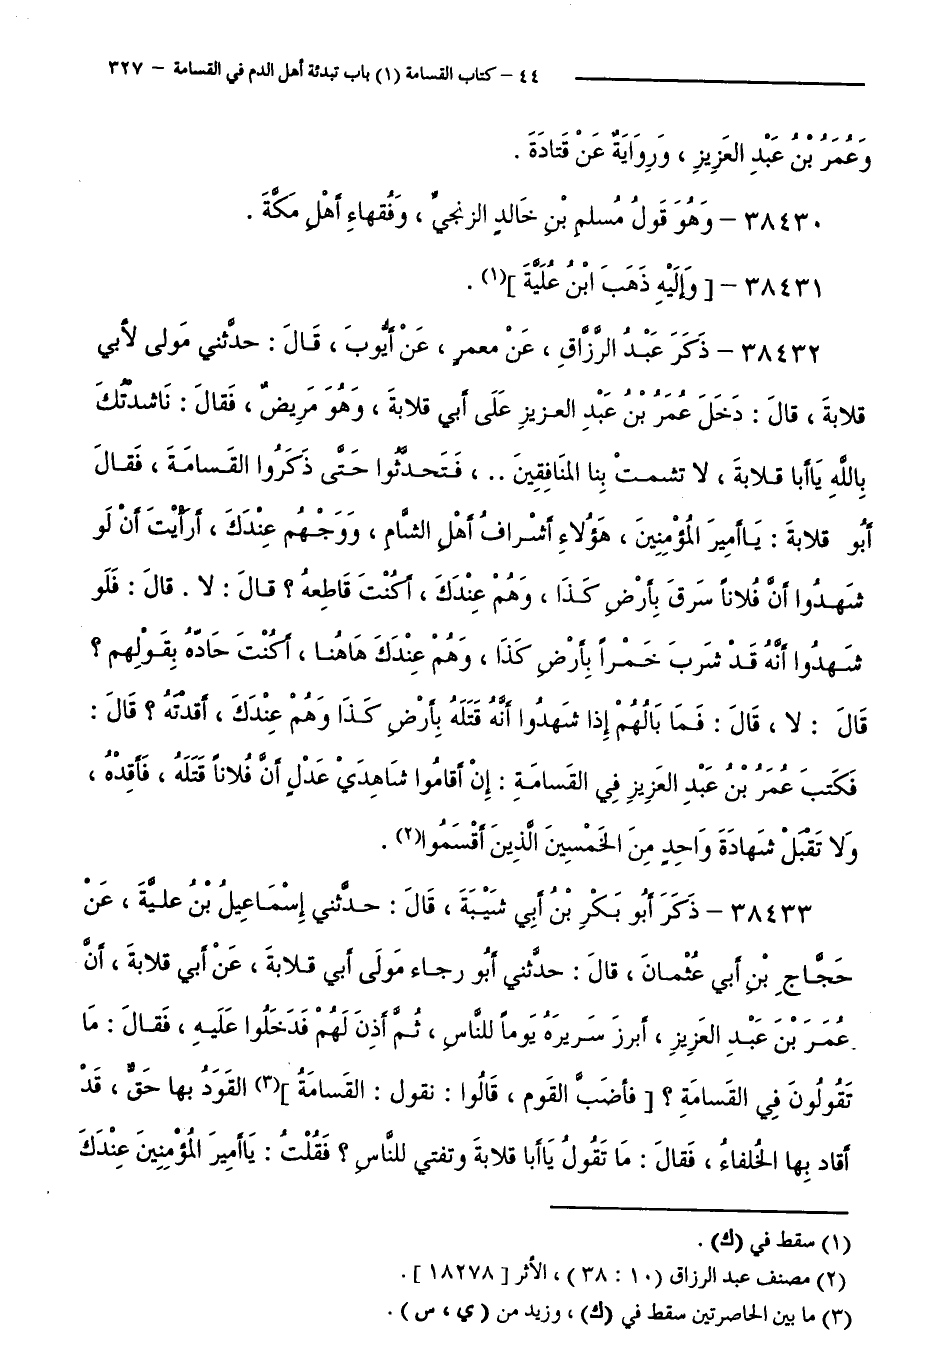 ٤٤ – كتاب القسامة (١) باب تبدئة أهل الدم في القسامة – ٣٢٧
وَعُمَرُ بْنُ عَبْدِ العَزِيزِ ، وَرِوَايَةٌ عَنْ قَتَادَةَ .
٣٨٤٣٠ – وَهُوَ قَولُ مُسلمِ بْنِ خَالدٍ الزنجيِّ ، وَفُقهاءِ أَهْلِ مَكَّةَ .
٣٨٤٣١ – [ وَإِلَيْهِ ذَهَبَ ابْنُ عُلَيَّةَ ](١) .
٣٨٤٣٢ – ذَكَرَ عَبْدُ الرَّزَّاقِ ، عَنْ معمرٍ ، عَنْ أَيُّوبَ ، قَالَ : حدَّثني مَولى لأبي
قلابةَ ، قالَ : دَخَلَ عُمَرُ بْنُ عَبْدِ العـزيزِ عَلَى أبي قلابةَ ، وَهُوَ مَرِيضٌ ، فَقالَ : نَاشدتُّكَ
بِاللَّهِ يَاأبا قـلابةَ ، لا تشمـتْ بِنا المُنَافِقِينَ .. ، فَـتَحدَّثُوا حَتَّى ذَكَرُوا القَـسامَـةَ ، فَقـالَ
أَبُو قلابةَ : يَـاأمِيرَ الْمُؤْمِنِينَ ، هَؤُلاءِ أَشْـرافُ أَهْلِ الشَّامِ ، وَوَجْـهُهم عِنْدَكَ ، أَرَأَيْتَ أَنْ لَو
شَـهِـدُوا أَنَّ فُلاناً سَرَقَ بِأَرْضِ كَـذَا ، وَهُمْ عِنْدَكَ ، أَكُنْتَ قَاطِعهُ ؟ قـالَ : لا . قالَ : فَلَو
شَـهـدُوا أَنَّهُ قَـدْ شَربَ خَـمْـراً بِأَرْضِ كَذَا ، وَهُمْ عِنْدَكَ هَاهُنـا ، أَكُنْتَ حَادَّهُ بِقَـولِهم ؟
قَالَ : لا ، قَالَ : فَـمَا بَالُهُمْ إذا شَـهدُوا أَنَّهُ قَتَلَهُ بِأَرْضِ كَـذَا وَهُمْ عِنْدَكَ ، أَقدْتَهُ ؟ قَالَ :
فَكَتَبَ عُمَرُ بْنُ عَبْدِ العَزِيزِ فِي القَسامَـةِ : إِنْ أقَامُوا شَاهِدَيْ عَدْلٍ أَنَّ فُلاناً قَتَلَهُ ، فَأقِدْهُ ،
وَلا تَقْبَلْ شَهادَةَ وَاحِدٍ مِنَ الخَمْسِينَ الَّذِينَ أَقْسَمُوا(٢) .
٣٨٤٣٣ – ذَكَرَ أَبُو بَـكْرِ بْنُ أَبِي شَيْبَةَ ، قَالَ : حـدَّثني إِسْمَـاعِيلُ بْنُ عليَّةَ ، عَنْ
حَجَّاجِ بْنِ أَبِي عُثْمـانَ ، قالَ : حدَّثني أَبُو رجاء مَولَى أبي قـلابةَ ، عَنْ أَبِي قلابةَ ، أَنَّ
عُمَرَ بْنَ عَبْـدِ العزِيزِ ، أبرزَ سَـرِيرَهُ يَوماً للنَّاسِ ، ثُـمَّ أَذِنَ لَهُمْ فَدَخَلُوا عَلَيـهِ ، فَقـالَ : مَا
تَقُولُونَ فِي القَسامَةِ ؟ [ فأضَبَّ القَوم ، قَالُوا : نقول : القَسامَةُ ](٣) القَوَدُ بها حَقٌّ ، قَدْ
أقاد بِها الخُلفاءُ ، فَقالَ : مَا تَقُولُ يَاأَبا قلابةَ وتفتي للنَّاسِ ؟ فَقُلْتُ : يَاأمِيرَ الْمُؤْمِنِينَ عِنْدَكَ
(١) سقط في (ك) .
(٢) مصنف عبد الرزاق (١٠ : ٣٨ ) ، الأثر [ ١٨٢٧٨ ] .
(٣) ما بين الحاصرتين سقط في (ك) ، وزيد من ( ي ، س ) .